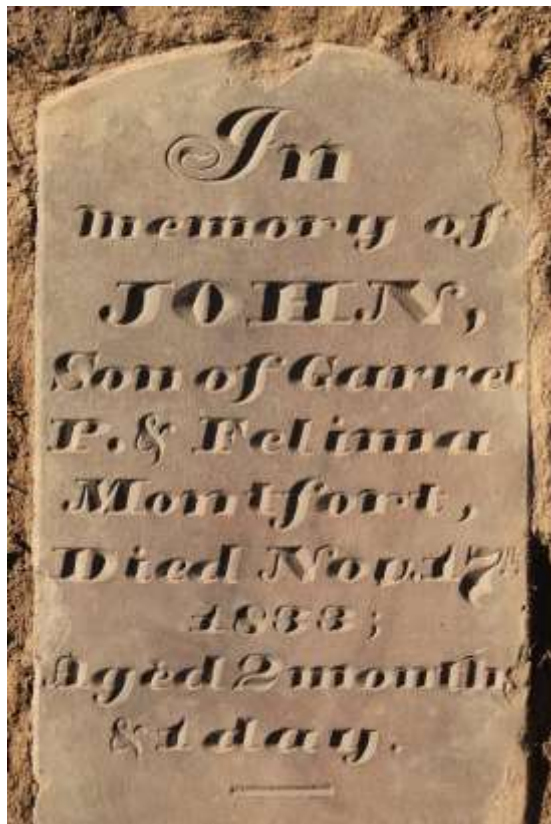 In
memory of
JOHN,
Son of Garret
P. & Felima
Montfort,
Died Nov. 17th
1833;
Aged 2 months
& 1 day.